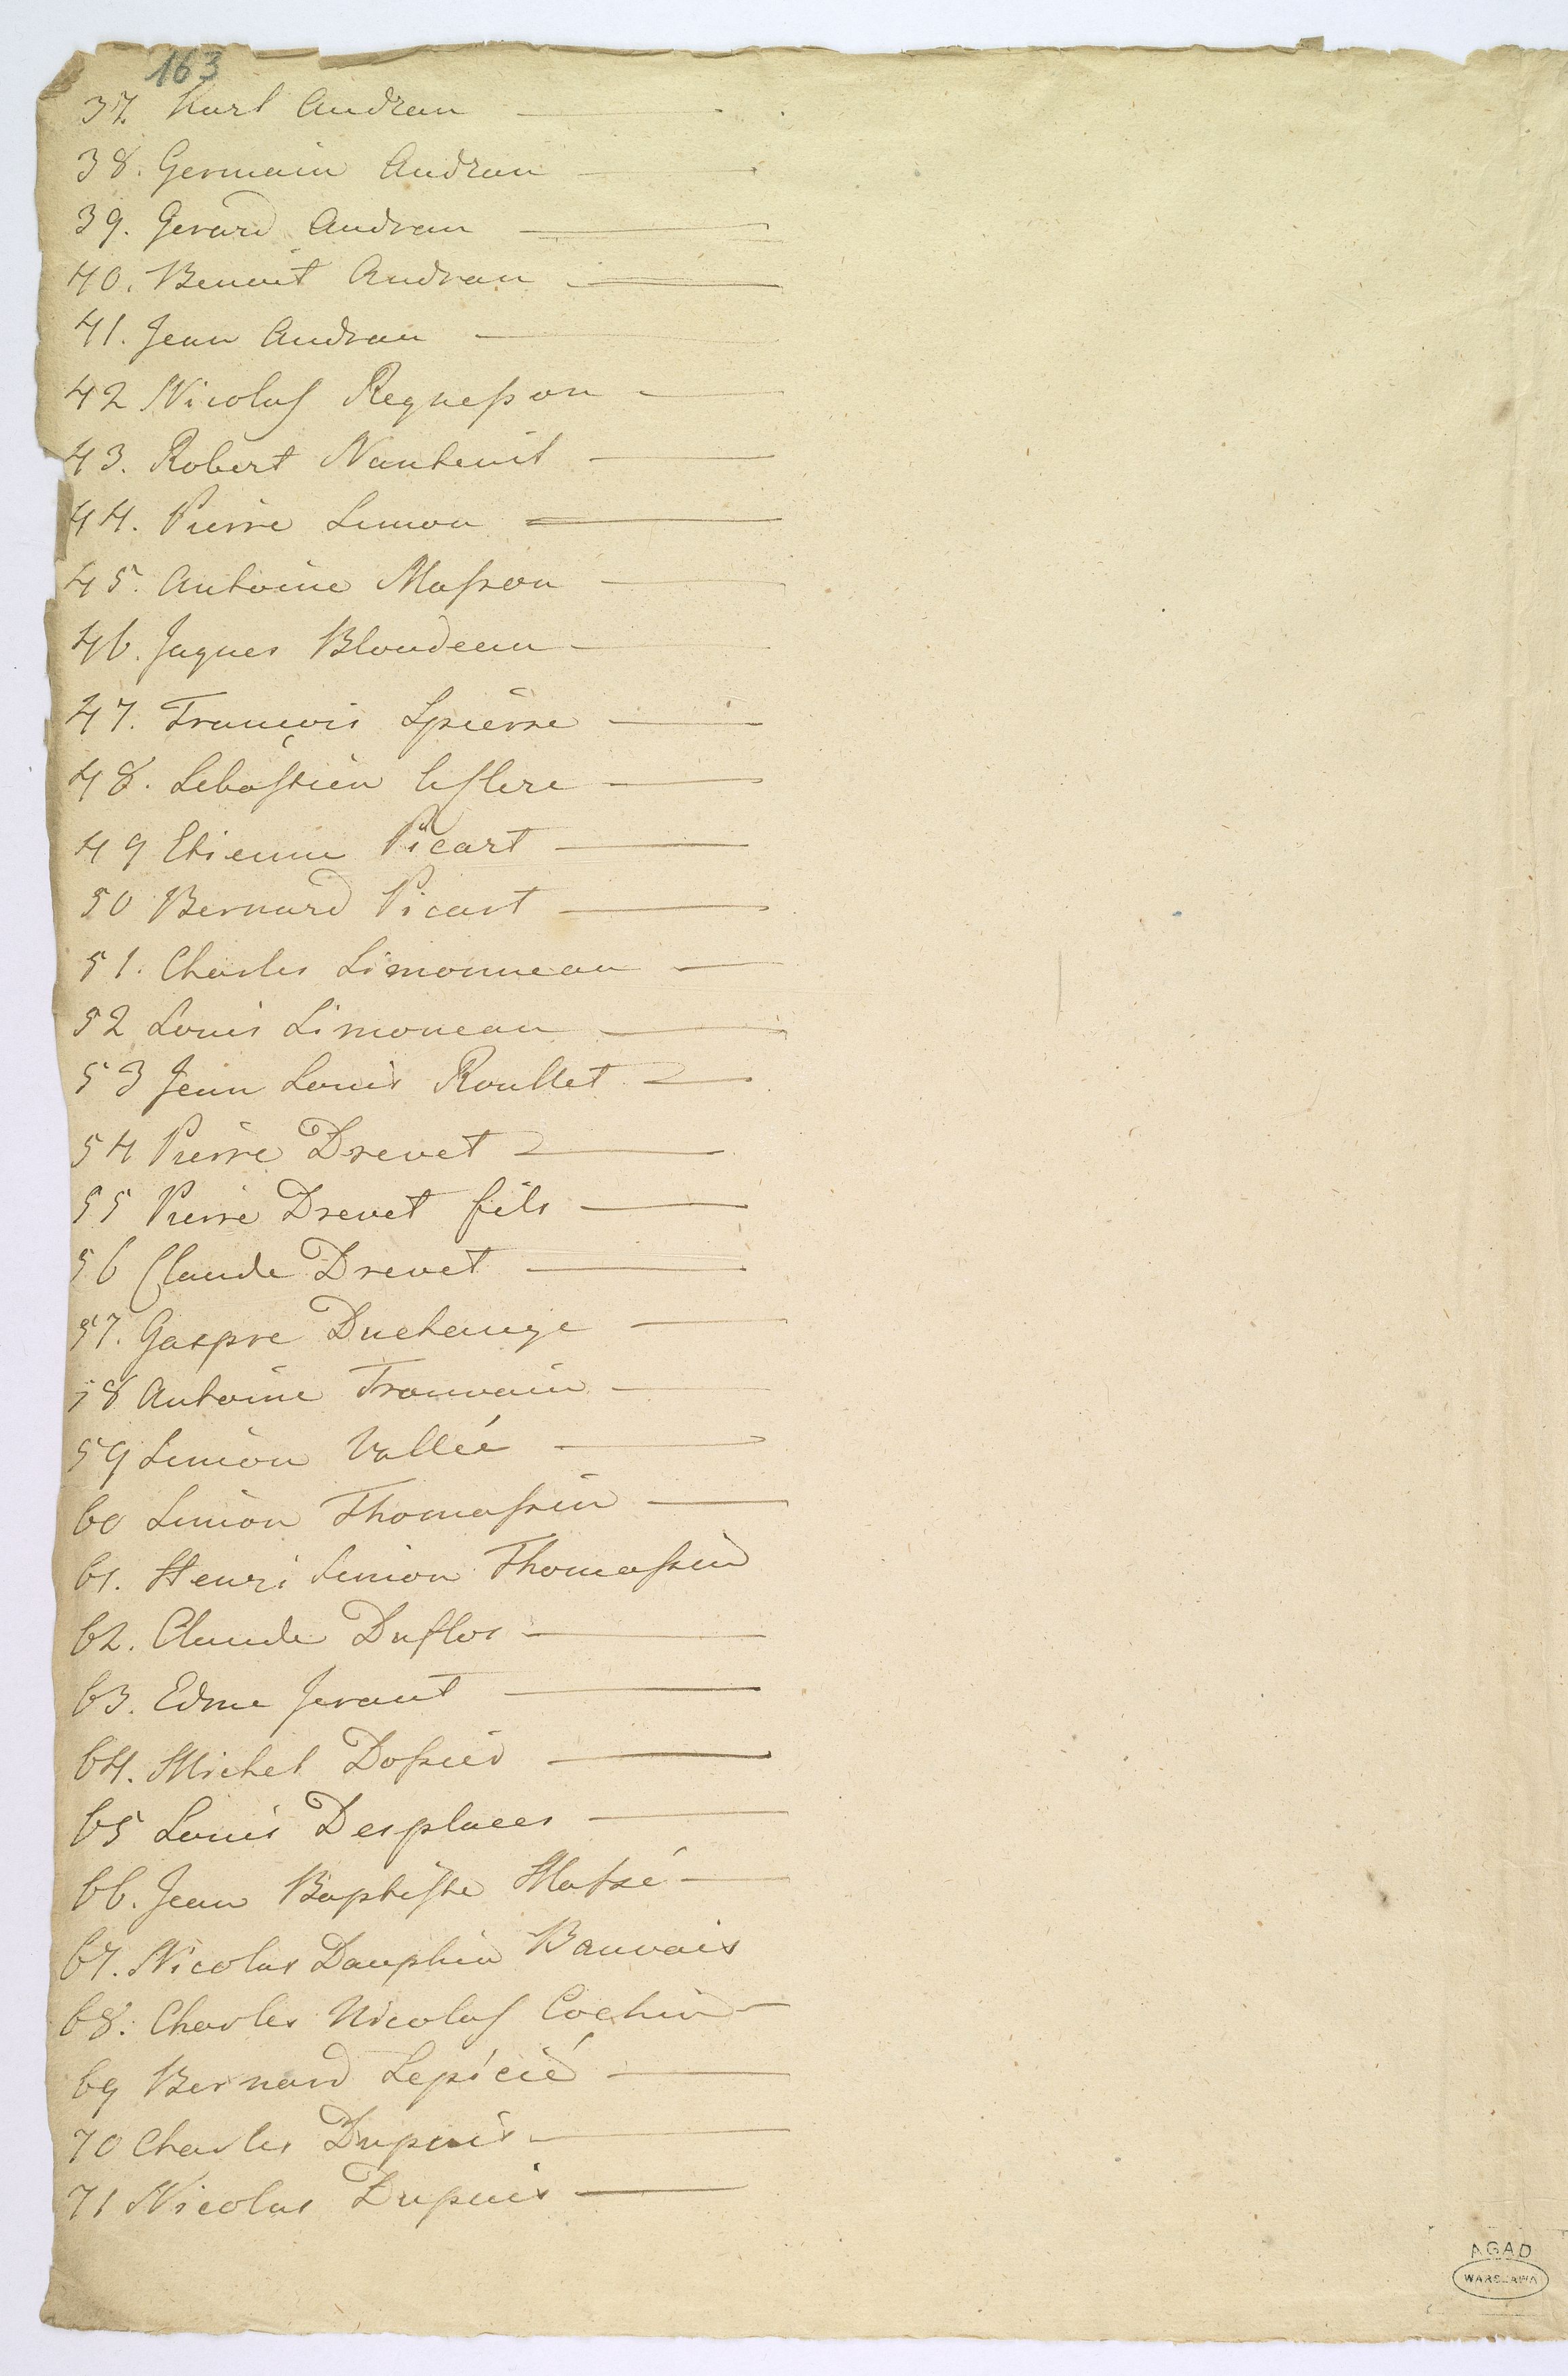 163
37. Karl Audran
38. Germain Audran
39. Gerard Audran
40. Benoit Audran
41. Jean Audran
42 Nicolas Regnesson
43. Robert Nanteuil
44. Pierre Simon
45. Antoine Masson
46. Jaques Blondeau
47. François Spierre
48. Sebastien leclere
49 Etienne Picart
50 Bernard Picart
51. Charles Simonneau
52 Louis Simoneau
53 Jean Louis Roullet
54 Pierre Drevet
55 Pierre Drevet fils
56 Claude Drevet
57. Gaspre Duchange
58 Antoine Trouvain
59 Simon Vallée
60 Simon Thomassin
61. Henri Simon Thomassin
62. Claude Duflos
63. Edme Jeraut
64. Michel Dossier
65 Louis Desplaces
66. Jean Baptiste Massé
67. Nicolas Dauphin Bauvais
68. Charles Nicolas Cochin
69 Bernard Lepicié
70 Charles Dupuis
71 Nicolas Dupuis
AGAD
WARSZAWA